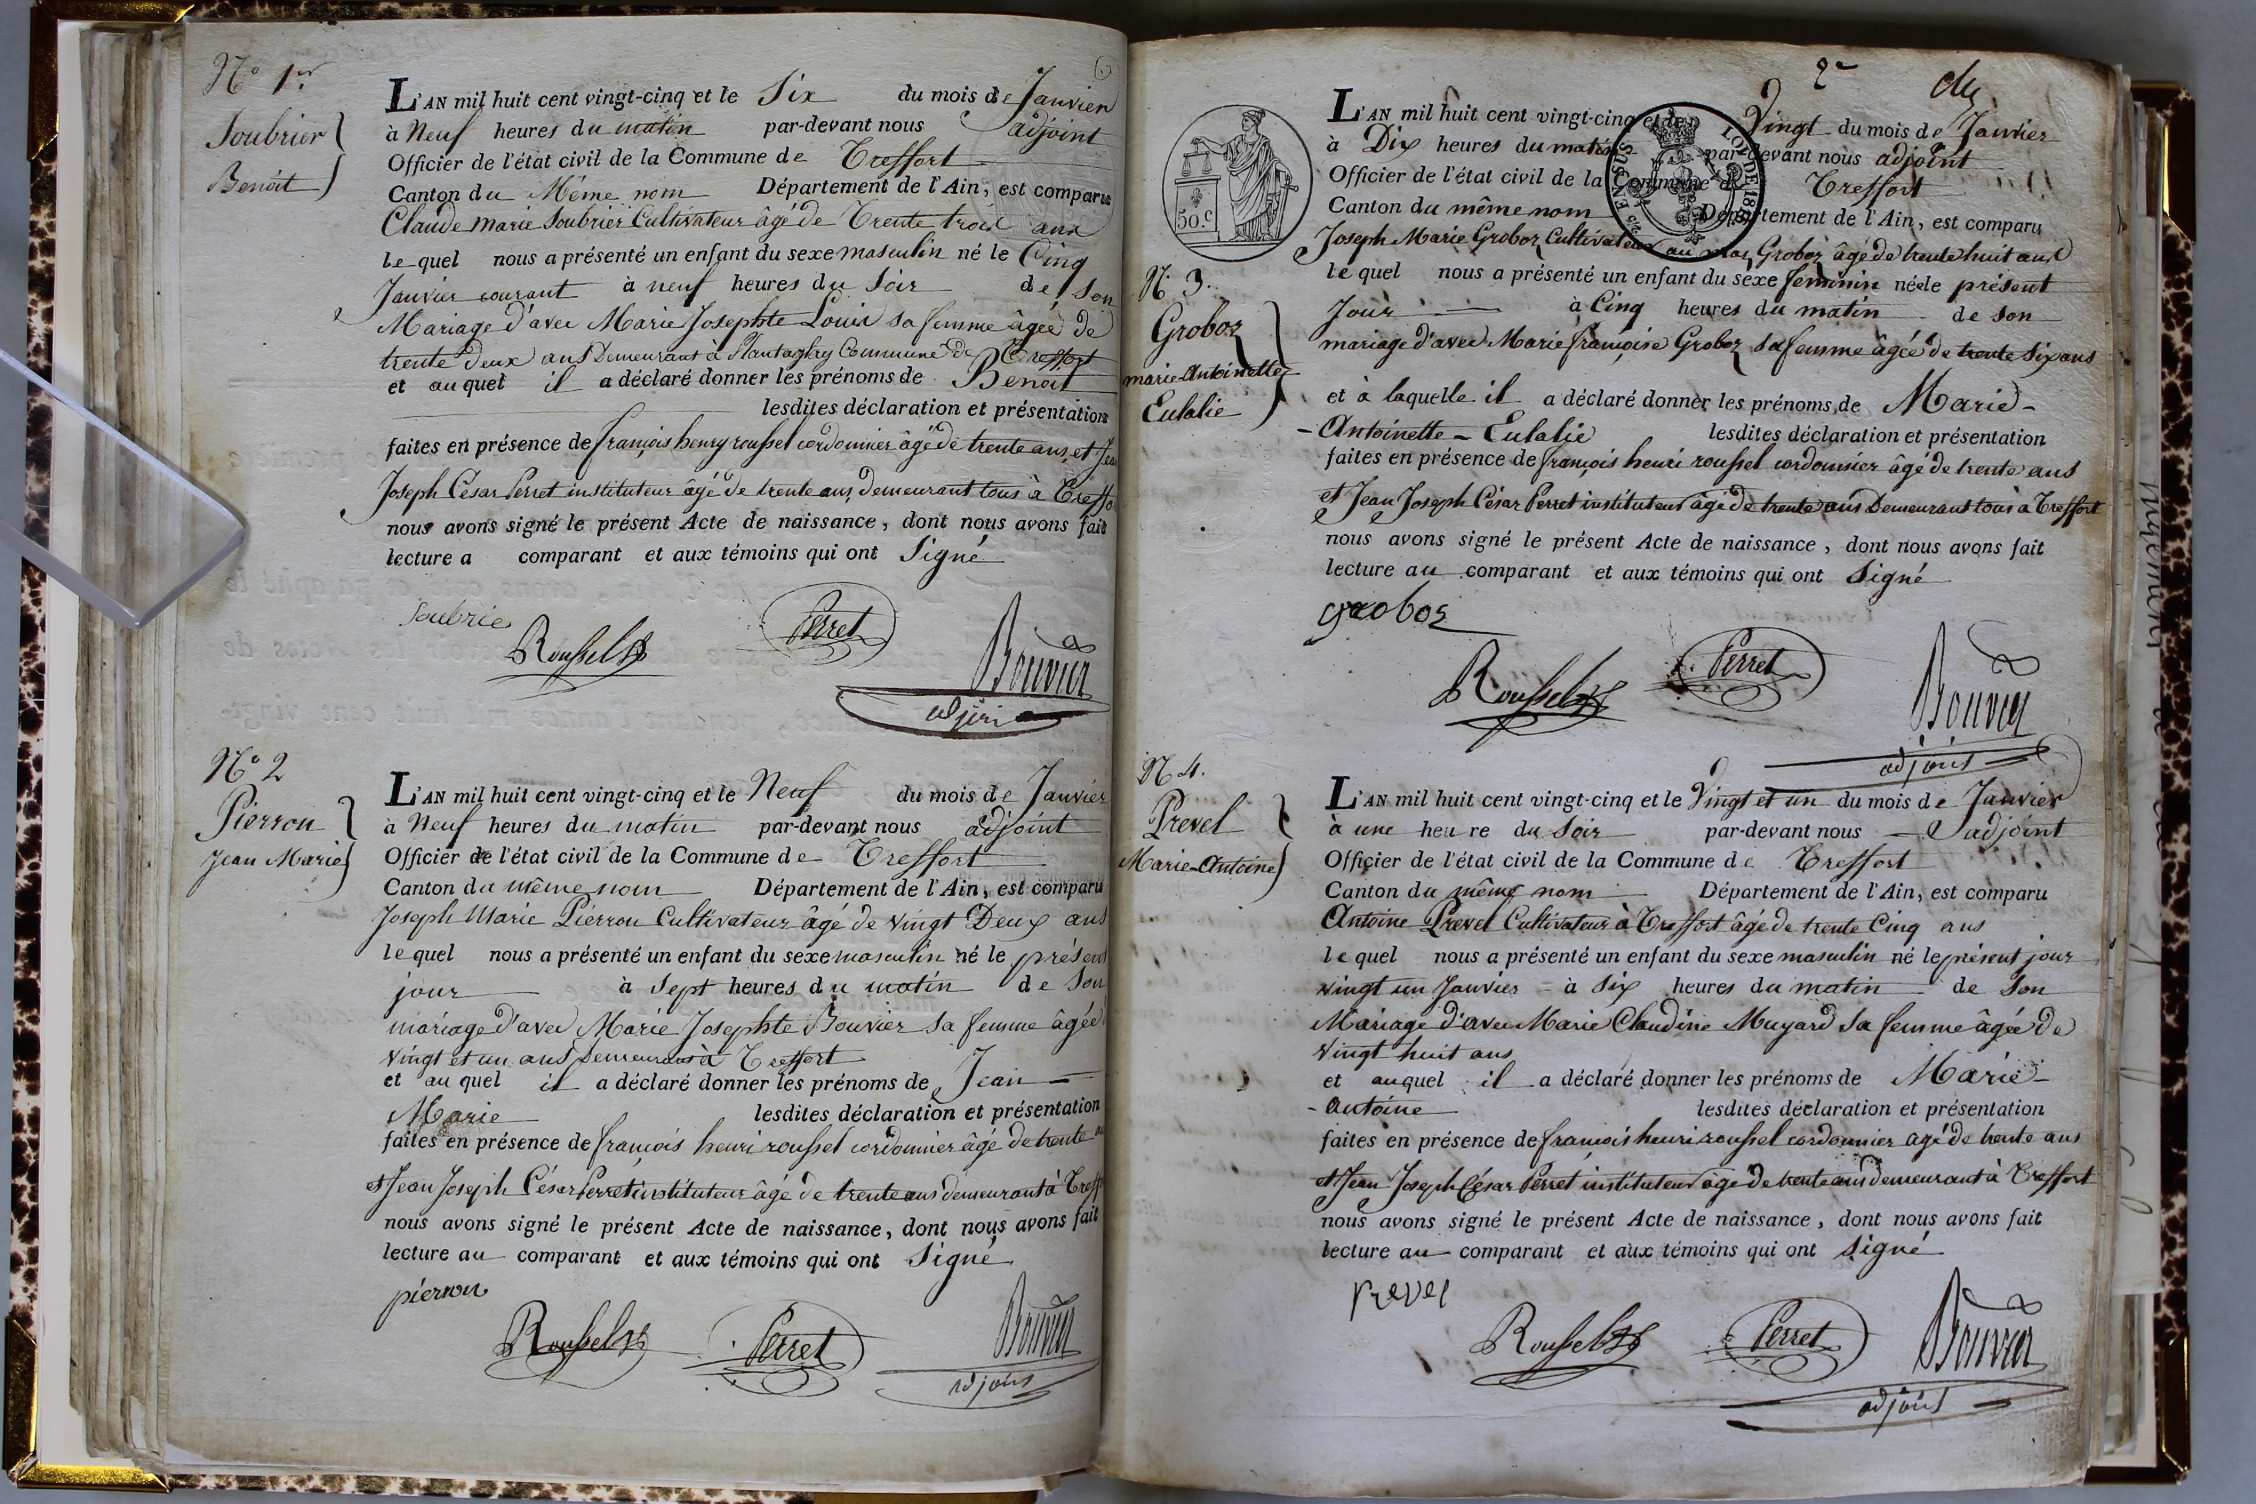 N° 1er
Soubrier
Benoit
L'AN mil huit cent vingt-cinq et le Six du mois de Janvier
à Neuf heures du matin par-devant nous adjoint
Officier de l'état civil de la Commune de Treffort
Canton du Même nom Département de l'Ain, est comparu
Claude Marie Soubrier Cultivateur âgé de Trente trois ans
lequel nous a présenté un enfant du sexe masculin né le Cinq
Janvier courant à neuf heures du Soir de son
Mariage d'avec Marie Josephte Louis sa femme âgée de
trente deux ans Demeurant à Commune de Treffort
et auquel il a déclaré donner les prénoms de Benoit
lesdites déclaration et présentation
faites en présence de françois henry roussel cordonnier âgé de trente ans, et Jean
Joseph César Perret instituteur âgé de trente ans, demeurant tous à Treffo
nous avons signé le présent Acte de naissance, dont nous avons fait
lecture a comparant et aux témoins qui ont Signé
Soubrie
Roussel
Perret
Bouvier
adjoint
N° 2
Pierron
Jean Marie
L'AN mil huit cent vingt-cinq et le Neuf du mois de Janvier
à Neuf heures du matin par-devant nous adjoint
Officier de l'état civil de la Commune de Treffort
Canton du même nom Département de l'Ain, est comparu
Joseph Marie Pierron Cultivateur âgé de vingt Deux ans
lequel nous a présenté un enfant du sexe masculin né le présent
jour à Sept heures du matin de Son
mariage d'avec Marie Josephte Bouvier sa femme âgée
vingt et un ans Demeurant à Treffort
et auquel il a déclaré donner les prénoms de Jean
Marie lesdites déclaration et présentation
faites en présence de françois henri roussel cordonnier âgé de trente a
et Jean Joseph César Perret instituteur âgé de trente ans demeurant à Treff
nous avons signé le présent Acte de naissance, dont nous avons fait
lecture au comparant et aux témoins qui ont Signé
pierron
Roussel
Perret
Bouvier
adjoint
2e
50.C
LOI DE 18
N. 3.
Groboz
marie-Antoinette
Eulalie
L'AN mil huit cent vingt-cinq et le Vingt du mois de Janvier
à Dix heures du matin par-devant nous adjoint
Officier de l'état civil de la Commune de Treffort
Canton du même nom Département de l'Ain, est comparu
Joseph Marie Groboz Cultivateur au mas Groboz âgé de trente huit ans
lequel nous a présenté un enfant du sexe féminin née le présent
Jour à Cinq heures du matin de son
mariage d'avec Marie françoise Groboz sa femme âgée de trente six ans
et à laquelle il a déclaré donner les prénoms de Marie-
-Antoinette-Eulalie lesdites déclaration et présentation
faites en présence de françois henri roussel cordonnier âgé de trente ans
et Jean Joseph César Perret instituteur âgé de trente ans Demeurant tous à Treffort
nous avons signé le présent Acte de naissance, dont nous avons fait
lecture au comparant et aux témoins qui ont Signé
groboz
Roussel
Perret
Bouvier
adjoint
N 4.
Prevel
Marie-Antoine
L'AN mil huit cent vingt-cinq et le Vingt et un du mois de Janvier
à une heure du Soir par-devant nous adjoint
Officier de l'état civil de la Commune de Treffort
Canton du même nom Département de l'Ain, est comparu
Antoine Prevel Cultivateur à Treffort âgé de trente Cinq ans
lequel nous a présenté un enfant du sexe masculin né le présent jour
vingt un Janvier à Six heures du matin de Son
Mariage d'avec Marie Claudine Muyard Sa femme âgée de
vingt huit ans
et auquel il a déclaré donner les prénoms de Marie-
-Antoine lesdites déclaration et présentation
faites en présence de françois henri roussel cordonnier agé de trente ans
et Jean Joseph César Perret instituteur âgé de trente ans demeurant à Treffort
nous avons signé le présent Acte de naissance, dont nous avons fait
lecture au comparant et aux témoins qui ont Signé
Prevel
Roussel
Perret
Bouvier
adjoint